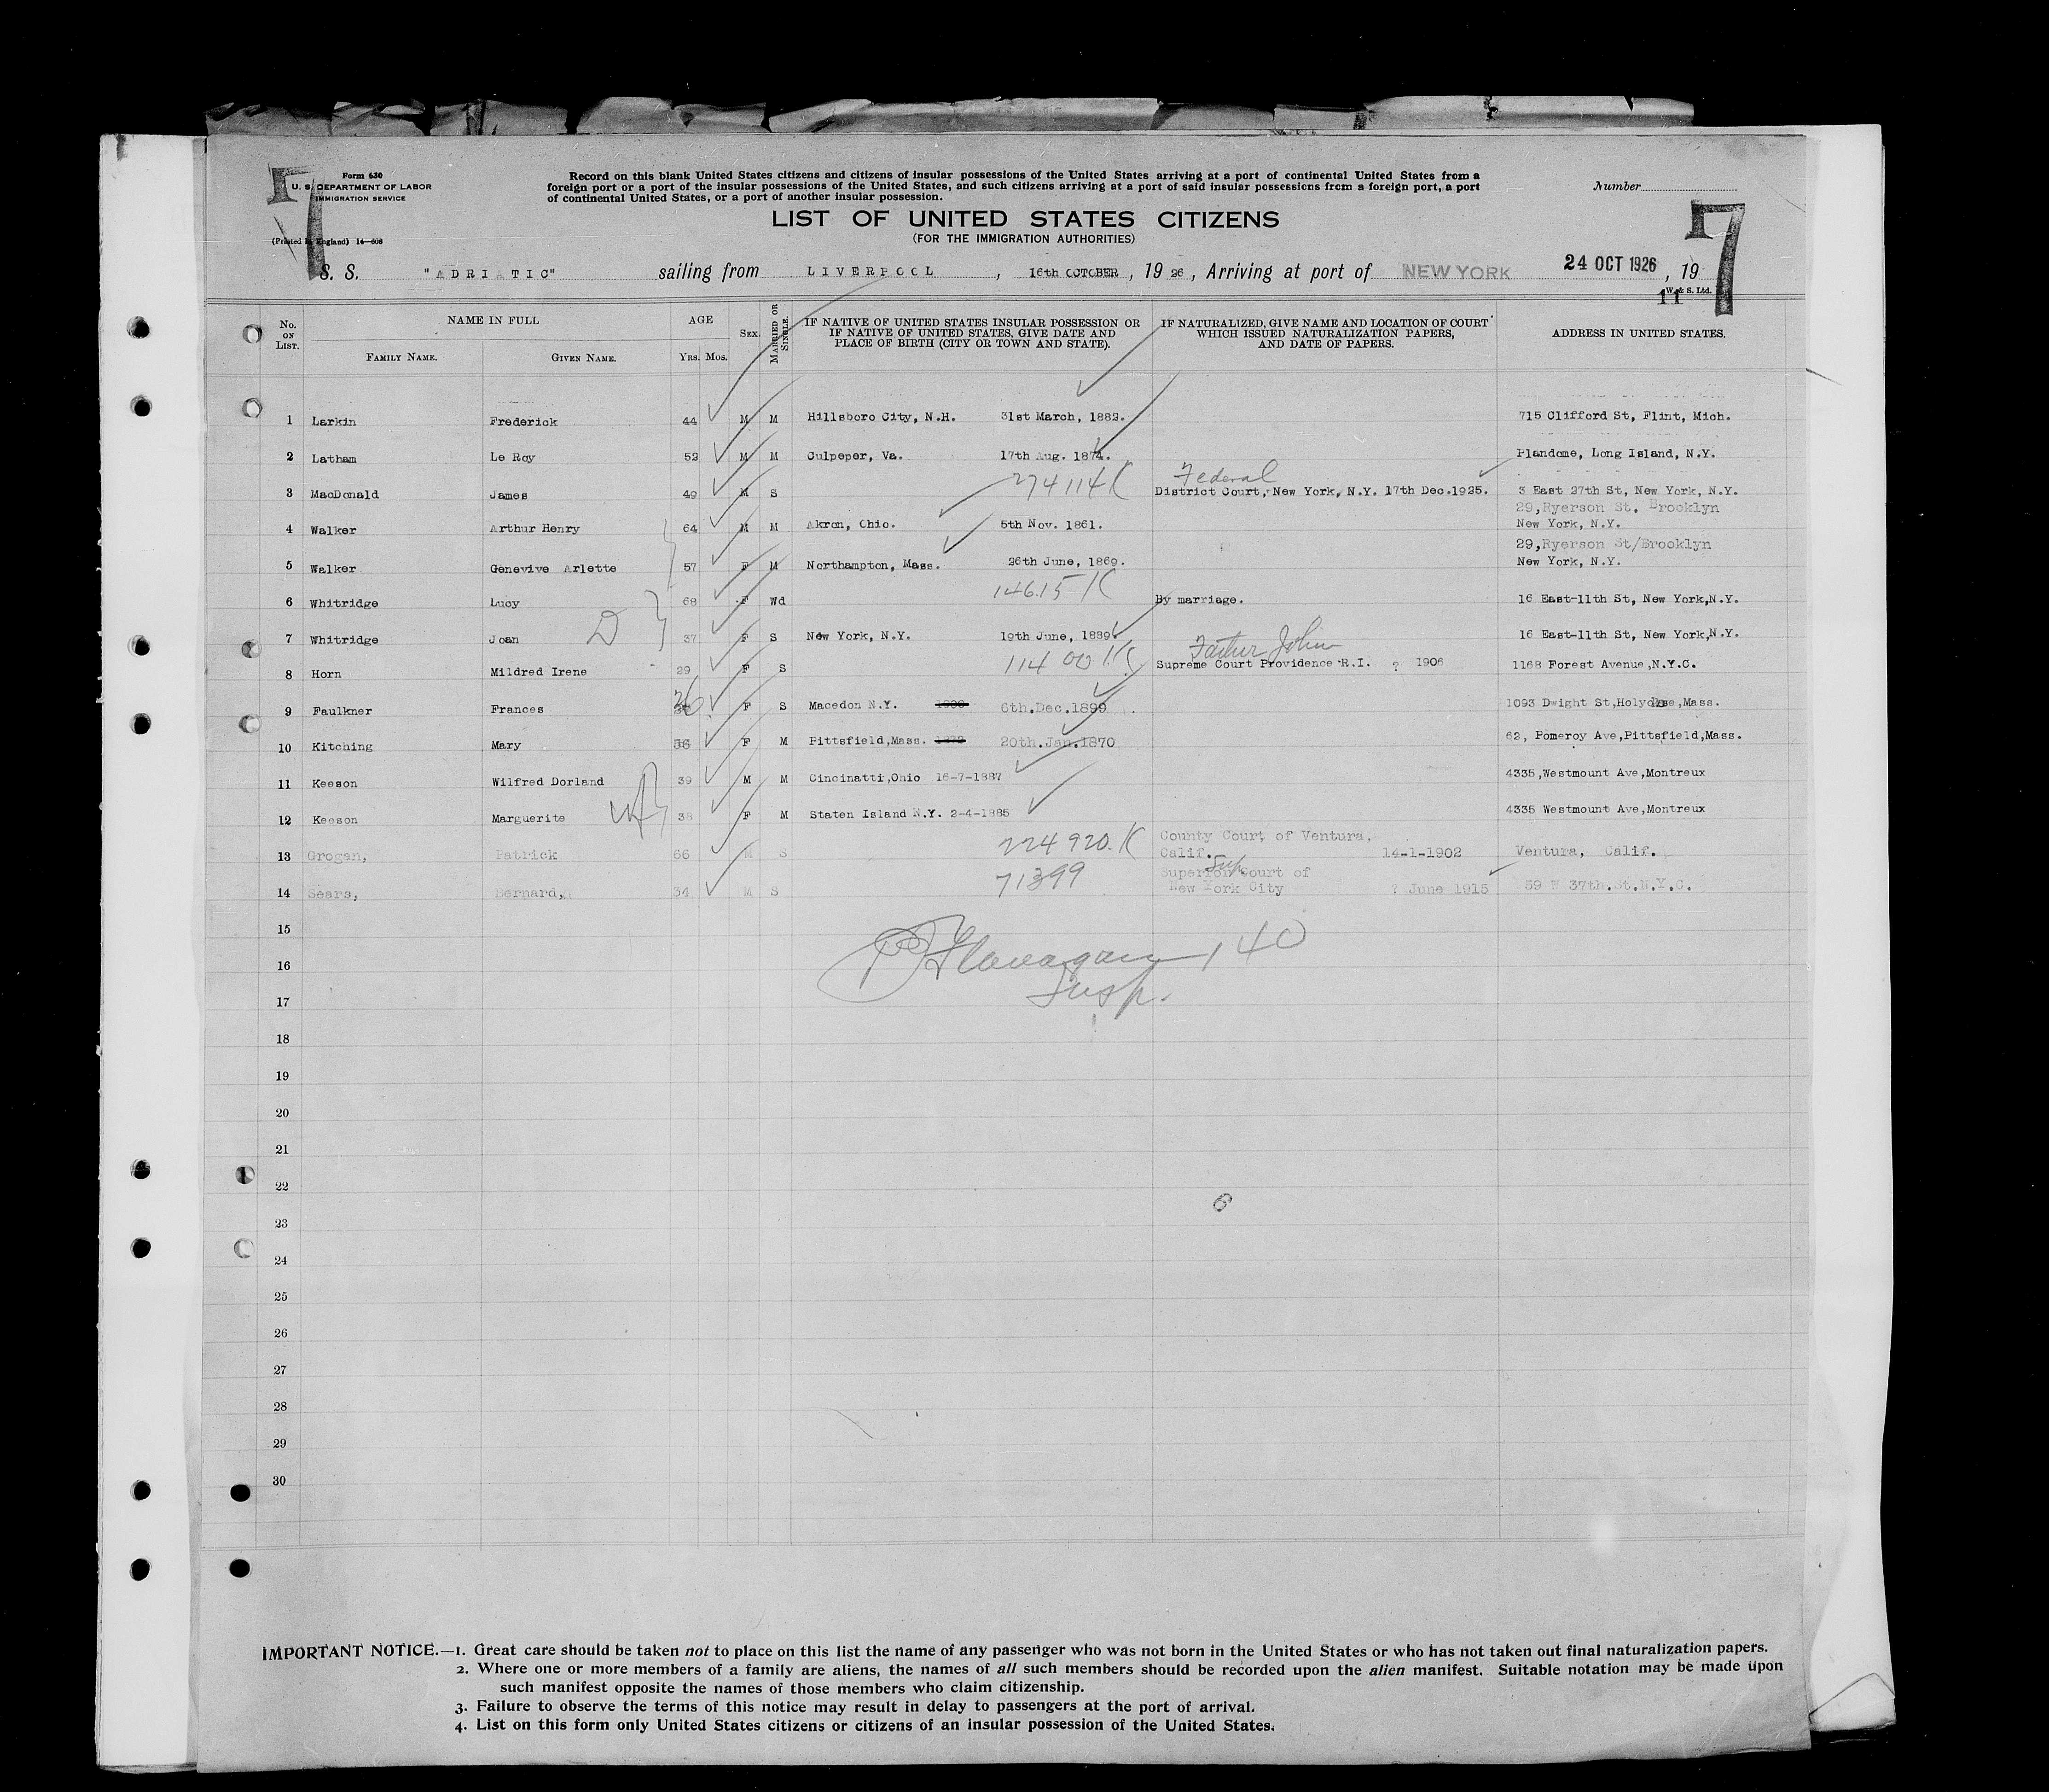 Form 630
U. S. DEPARTMENT OF LABOR
IMMIGRATION SERVICE
(Printed in England) 14—608
Record on this blank United States citizens and citizens of insular possessions of the United States arriving at a port of continental United States from a
foreign port or a port of the insular possessions of the United States, and such citizens arriving at a port of said insular possessions from a foreign port, a port
of continental United States, or a port of another insular possession.
Number
LIST OF UNITED STATES CITIZENS
(FOR THE IMMIGRATION AUTHORITIES)
7
S. S. "ADRIATIC" sailing from LIVERPOOL, 16th OCTOBER, 19 26, Arriving at port of NEW YORK 24 OCT 1926, 19
W. & S. Ltd.
11
No. ON LIST. NAME IN FULL AGE SEX. MARRIED OR SINGLE. IF NATIVE OF UNITED STATES INSULAR POSSESSION OR IF NATIVE OF UNITED STATES, GIVE DATE AND PLACE OF BIRTH (CITY OR TOWN AND STATE). IF NATURALIZED, GIVE NAME AND LOCATION OF COURT WHICH ISSUED NATURALIZATION PAPERS, AND DATE OF PAPERS. ADDRESS IN UNITED STATES.
FAMILY NAME. GIVEN NAME. YRS. MOS.
1 Larkin Frederick 44 M M Hillsboro City, N.H. 31st March, 1882. 715 Clifford St, Flint, Mich.
2 Latham Le Roy 52 M M Culpeper, Va. 17th Aug. 1874. Plandome, Long Island, N.Y.
274114K Federal
3 MacDonald James 49 M S District Court, New York, N.Y. 17th Dec.1925. 3 East 27th St, New York, N.Y.
29,Ryerson St. Brooklyn
4 Walker Arthur Henry 64 M M Akron, Ohio. 5th Nov. 1861. New York, N.Y.
29,Ryerson St/Brooklyn
5 Walker Genevive Arlette 57 F M Northampton, Mass. 26th June, 1869. New York, N.Y.
14615 K
6 Whitridge Lucy 68 F Wd By marriage. 16 East-11th St, New York,N.Y.
D
7 Whitridge Joan 37 F S New York, N.Y. 19th June, 1889. 16 East-11th St, New York,N.Y.
11400 K Father John
8 Horn Mildred Irene 29 F S Supreme Court Providence R.I. ? 1906 1168 Forest Avenue,N.Y.C.
26
9 Faulkner Frances F S Macedon N.Y. 6th.Dec.1899. 1093 Dwight St,Holyoke,Mass.
10 Kitching Mary 56 F M Pittsfield,Mass. 20th.Jan.1870 62, Pomeroy Ave,Pittsfield,Mass.
11 Keeson Wilfred Dorland 39 M M Cincinatti,Ohio 16-7-1887 4335,Westmount Ave,Montreux
12 Keeson Marguerite 38 F M Staten Island N.Y. 2-4-1885 4335 Westmount Ave,Montreux
224920.K County Court of Ventura.
13 Grogan, Patrick 66 M S Calif. 14-1-1902 Ventura, Calif.
71399 Sup Superior Court of
14 Sears, Bernard, 34 M S New York City ? June 1915 59 W 37th.St.N.Y.C.
15
Flanagan 140
16
Insp.
17
18
19
20
21
22
6
23
24
25
26
27
28
29
30
IMPORTANT NOTICE.—1. Great care should be taken not to place on this list the name of any passenger who was not born in the United States or who has not taken out final naturalization papers.
2. Where one or more members of a family are aliens, the names of all such members should be recorded upon the alien manifest. Suitable notation may be made upon
such manifest opposite the names of those members who claim citizenship.
3. Failure to observe the terms of this notice may result in delay to passengers at the port of arrival.
4. List on this form only United States citizens or citizens of an insular possession of the United States.